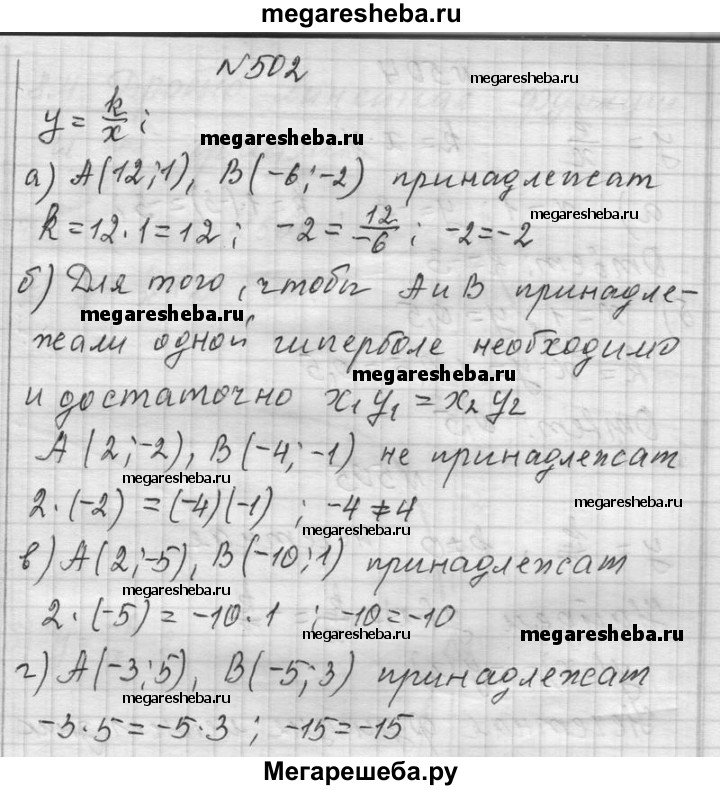 megaresheba.ru
№502
megaresheba.ru
y = k/x ;
megaresheba.ru
а) A(12; 1), B(-6; -2) принадлежат
megaresheba.ru
k = 12·1 = 12 ; -2 = 12/-6 ; -2 = -2
б) Для того, чтобы A и B принадле-
megaresheba.ru
жали одной гиперболе необходимо
megaresheba.ru
и достаточно x₁y₁ = x₂y₂
A (2; -2), B(-4; -1) не принадлежат
megaresheba.ru
megaresheba.ru
2·(-2) = (-4)(-1) ; -4 ≠ 4
megaresheba.ru
в) A(2; -5), B(-10; 1) принадлежат
megaresheba.ru
2·(-5) = -10·1 ; -10 = -10
megaresheba.ru
megaresheba.ru
г) A(-3; 5), B(-5; 3) принадлежат
megaresheba.ru
megaresheba.ru
-3·5 = -5·3 ; -15 = -15
Мегарешеба.ру